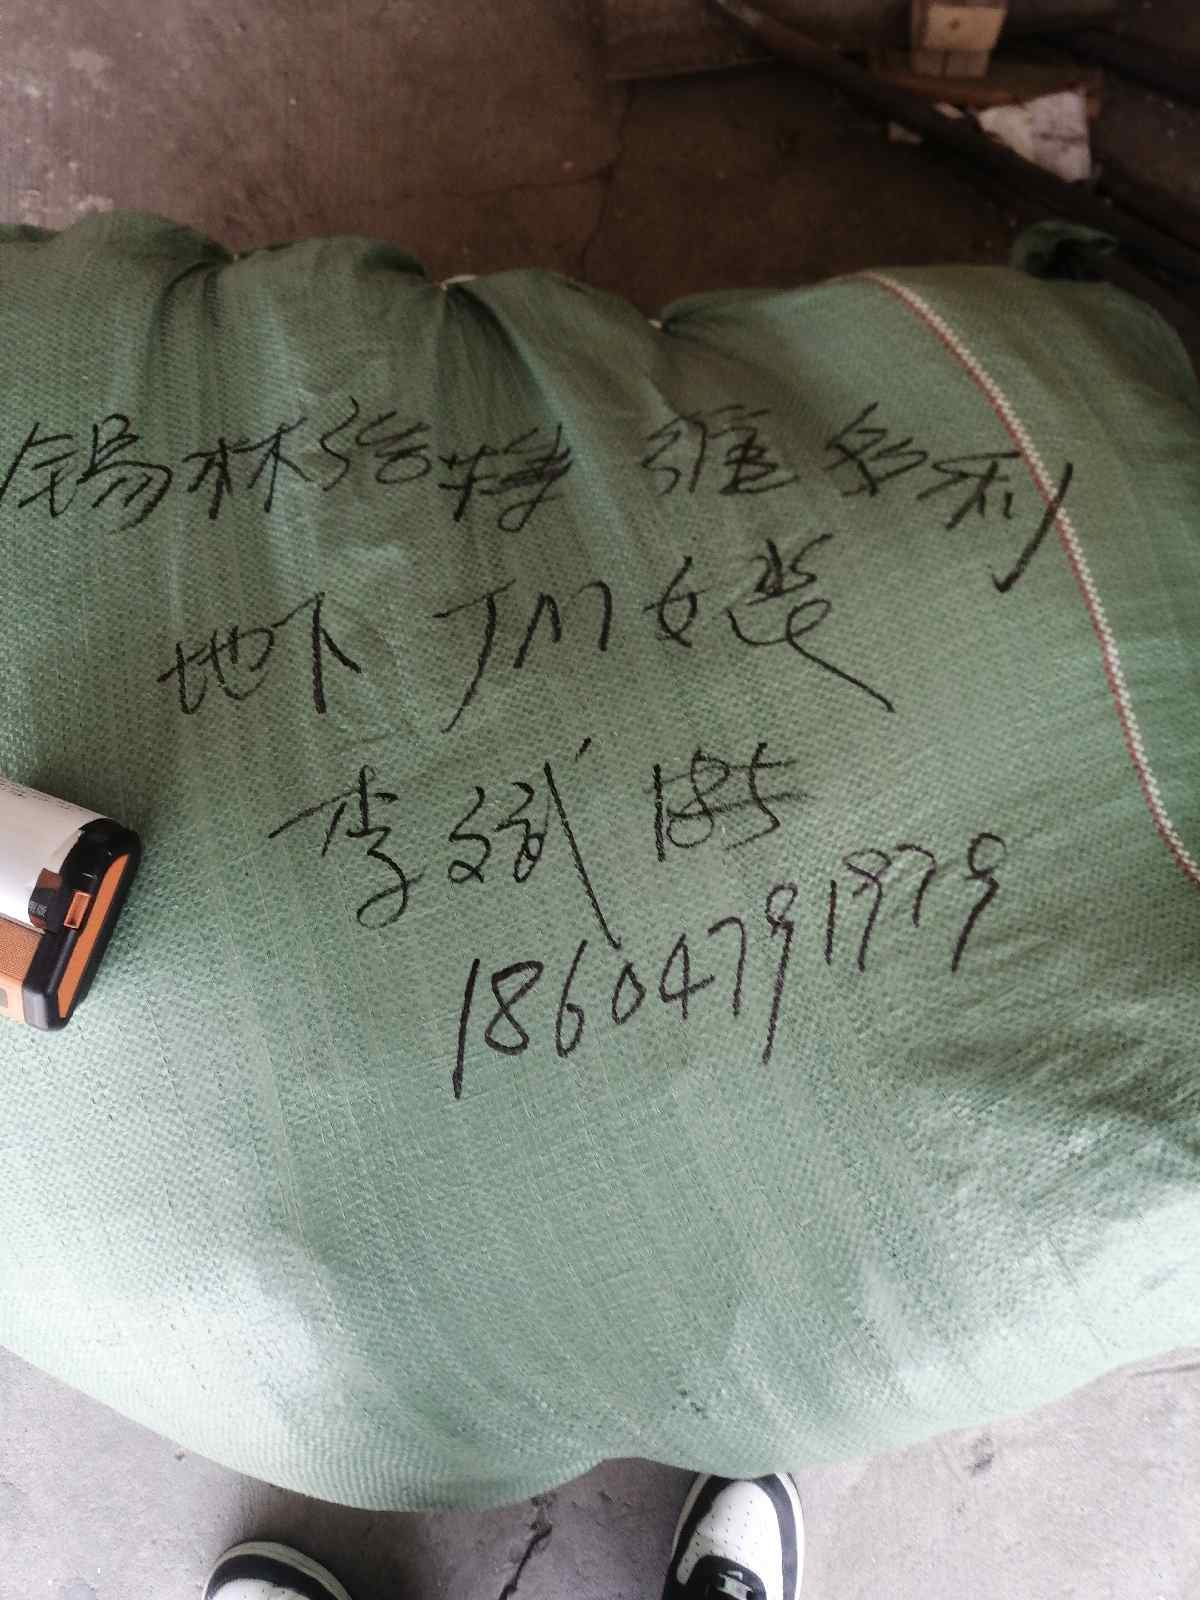 锡林浩特 维多利
地下 JM女装
李斌
18604791979